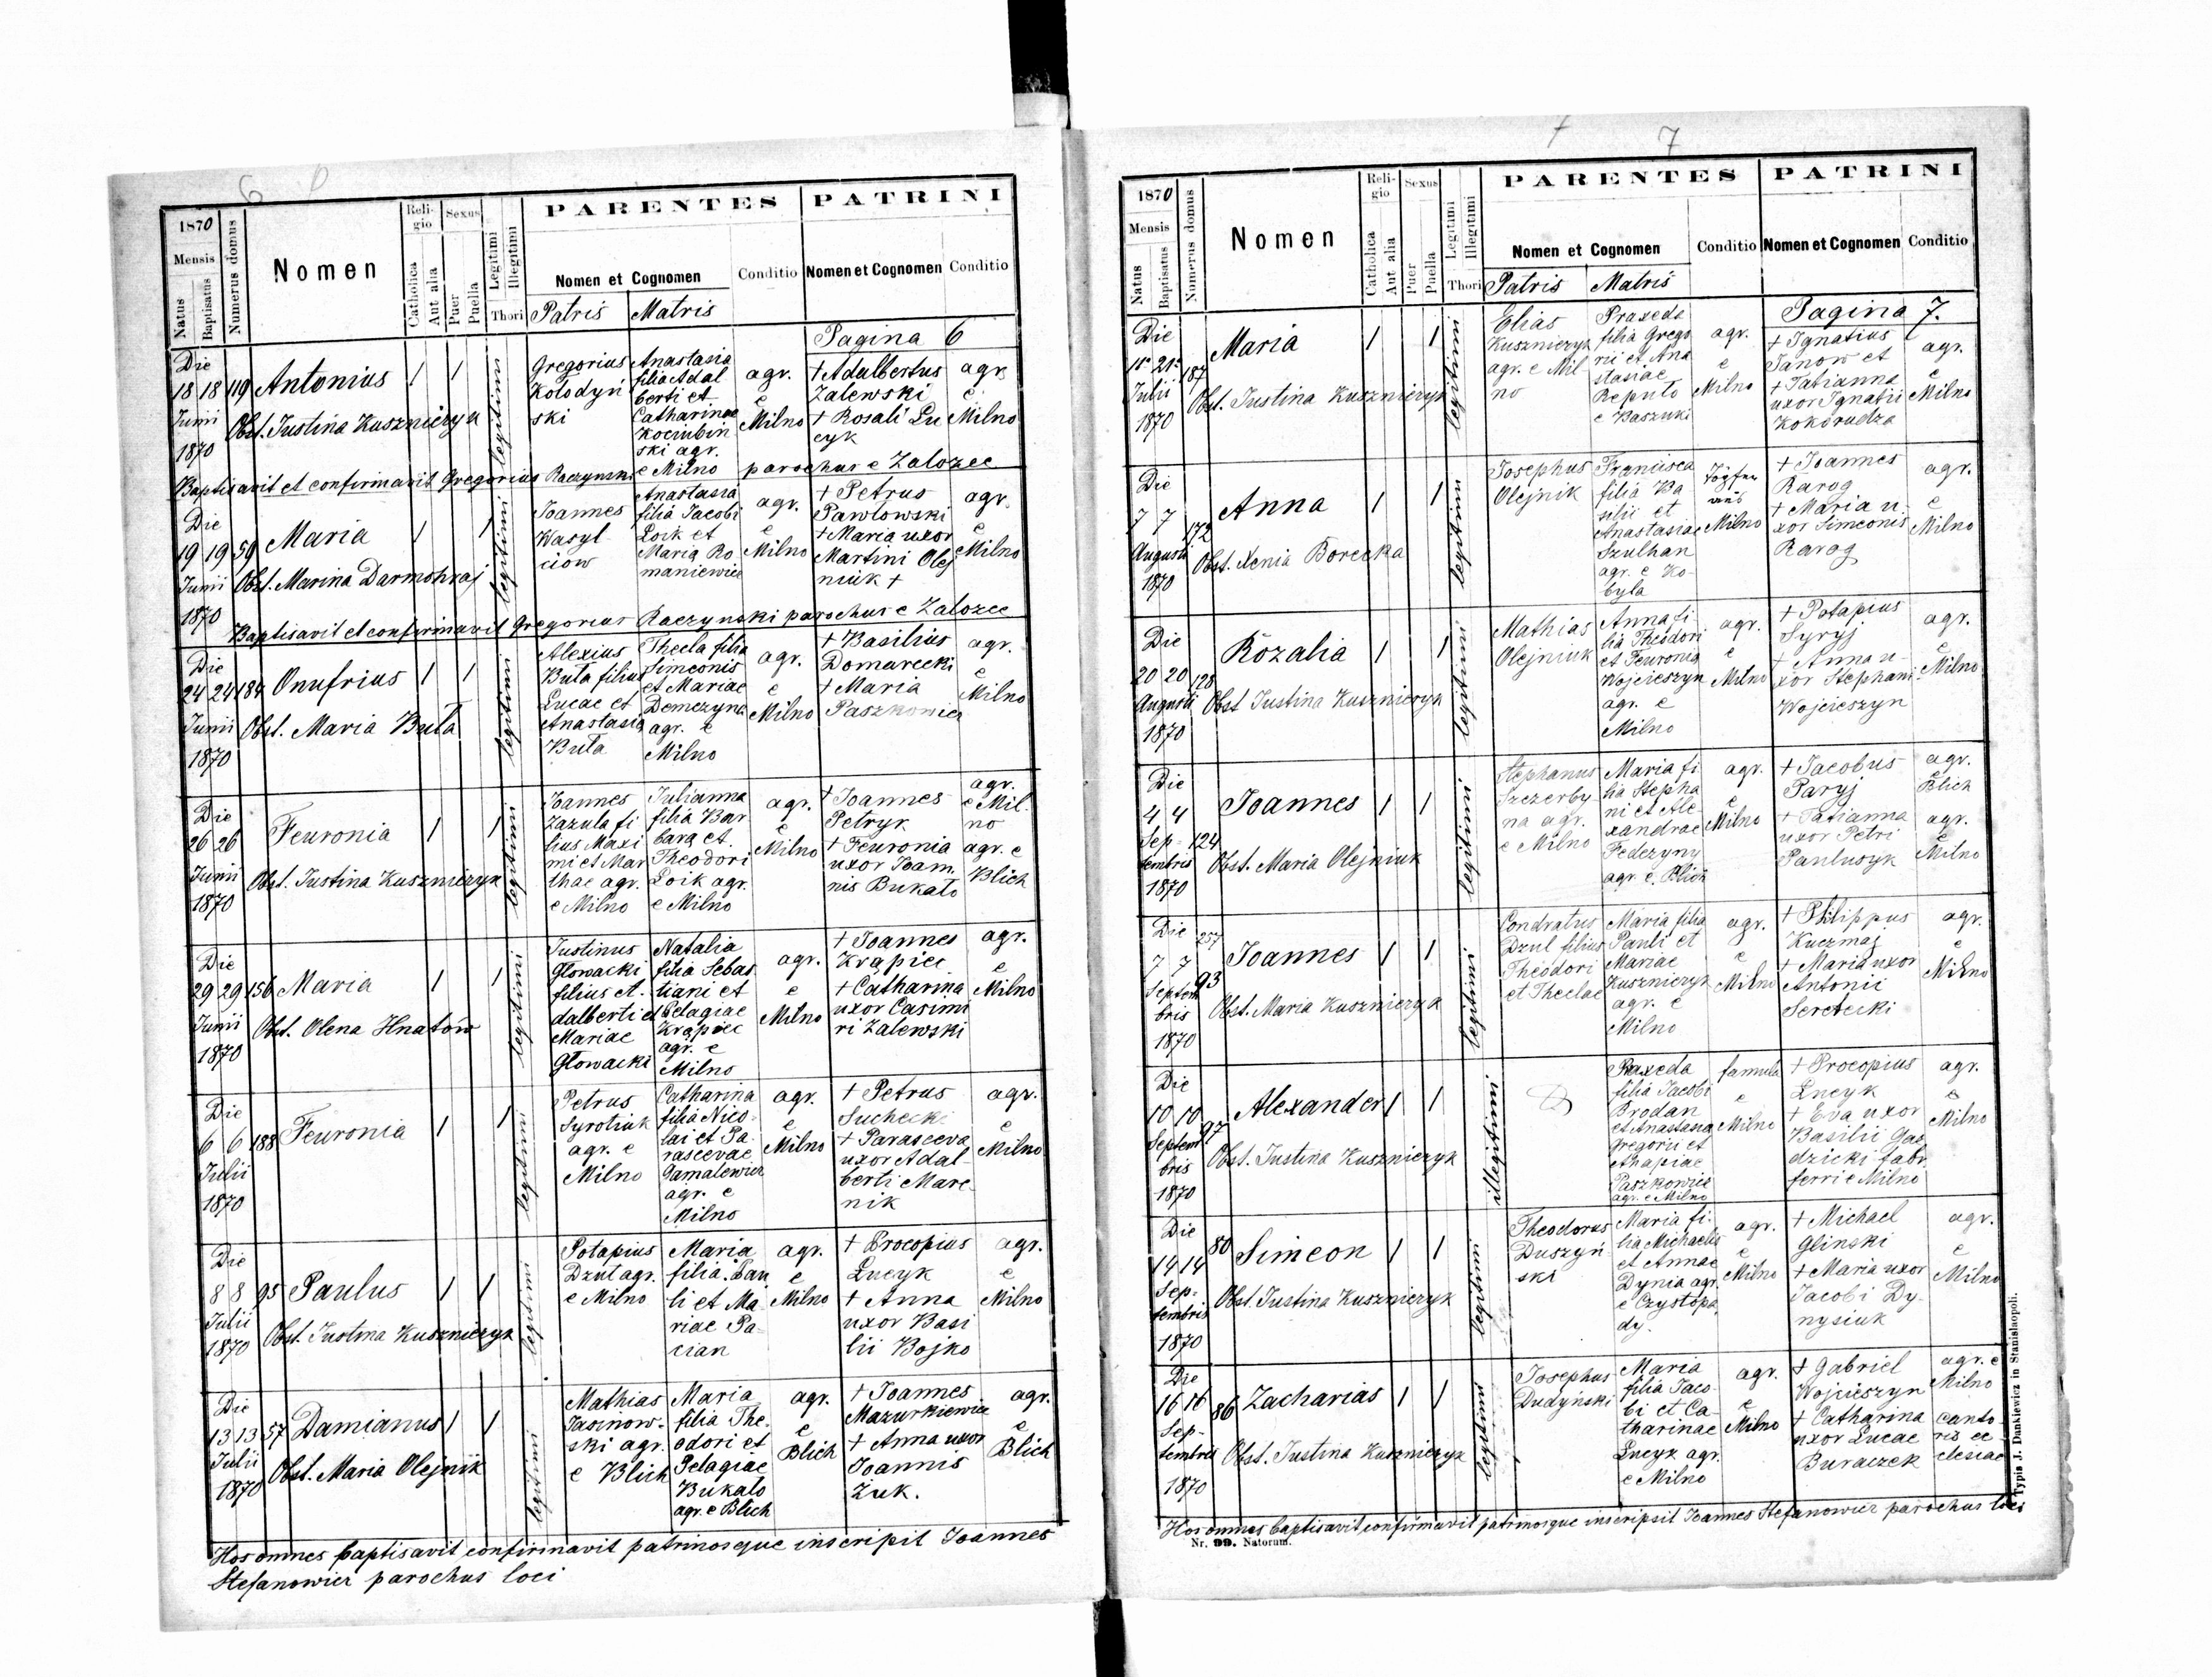 6
1870
Mensis
Natus
Baptisatus
Numerus domus
Nomen
Reli-
gio
Catholica
Aut alia
Sexus
Puer
Puella
Legitimi
Illegitimi
Thori
PARENTES
Nomen et Cognomen
Patris Matris
Conditio
PATRINI
Nomen et Cognomen
Conditio
Pagina 6
Die
18 18 119 Antonius 1 1
Junii
1870
Obst. Justina Kuszniczyk
legitimi
Gregorius
Kolodyń
ski
Anastasia
filia Adal
berti et
Catharinae
Kociubin
ski agr.
e Milno
agr.
e
Milno
+ Adalbertus
Zalewski
+ Rosali Lu
cyk
agr.
e
Milno
Baptisavit et confirmavit Gregorius Raczynski parochus e Zalozce
Die
19 19 59 Maria 1 1
Junii
1870
Obst. Marina Darmohraj
legitimi
Joannes
Wasyl
ciow
Anastasia
filia Jacobi
Loik et
Maria Ro
maniewicz
agr.
e
Milno
+ Petrus
Pawlowski
+ Maria uxor
Martini Olej
niuk +
agr.
e
Milno
Baptisavit et confirmavit Gregorius Raczynski parochus e Zalozce
Die
24 24 184 Onufrius 1 1
Junii
1870
Obst. Maria Buta
legitimi
Alexius
Buta filius
Lucae et
Anastasia
Buta
Thecla filia
Simeonis
et Mariae
Demczyna
agr. e
Milno
agr.
e
Milno
+ Basilius
Domarecki
+ Maria
Paszkowicz
agr.
e
Milno
Die
26 26 Feuronia 1 1
Junii
1870
Obst. Justina Kuszniczyk
legitimi
Joannes
Zazula fi
lius Maxi
mi et Mar
thae agr.
e Milno
Julianna
filia Bar
bara et
Theodori
Loik agr.
e Milno
agr.
e
Milno
+ Joannes
Petryk
+ Feuronia
uxor Joan
nis Bukalo
agr.
e Mil
no
agr. e
Blich
Die
29 29 156 Maria 1 1
Junii
1870
Obst. Olena Hnatów
legitimi
Justinus
Glowacki
filius A
dalberti et
Mariae
Glowacki
Natalia
filia Sebas
tiani et
Pelagiae
Krąpiec
agr. e
Milno
agr.
e
Milno
+ Joannes
Krąpiec
+ Catharina
uxor Casimi
ri Zalewski
agr.
e
Milno
Die
6 6 188 Feuronia 1 1
Julii
1870
legitimi
Petrus
Syrotiuk
agr. e
Milno
Catharina
filia Nico
lai et Pa
rascevae
Gamalewicz
agr. e
Milno
agr.
e
Milno
+ Petrus
Suchecki
+ Parasceva
uxor Adal
berti Marc
nik
agr.
e
Milno
Die
8 8 95 Paulus 1 1
Julii
1870
Obst. Justina Kuszniczyk
legitimi
Potapius
Dzul agr.
e Milno
Maria
filia Pau
li et Ma
riae Pa
cian
agr.
e
Milno
+ Procopius
Lucyk
+ Anna
uxor Basi
lii Bojko
agr.
e
Milno
Die
13 13 57 Damianus 1 1
Julii
1870
Obst. Maria Olejnik
legitimi
Mathias
Jasinow-
ski agr.
e Blich
Maria
filia The
odori et
Pelagiae
Bukalo
agr. e Blich
agr.
e
Blich
+ Joannes
Mazurkiewicz
+ Anna uxor
Joannis
Żuk.
agr.
e
Blich
Hos omnes baptisavit confirmavit patrinosque inscripit Joannes
Stefanowicz parochus loci
7
1870
Mensis
Natus
Baptisatus
Numerus domus
Nomen
Reli-
gio
Catholica
Aut alia
Sexus
Puer
Puella
Legitimi
Illegitimi
Thori
PARENTES
Nomen et Cognomen
Patris Matris
Conditio
PATRINI
Nomen et Cognomen
Conditio
Pagina 7.
Die
15 21 187 Maria 1 1
Julii
1870
Obst. Justina Kuszniczyk
legitimi
Elias
Kuszniczyk
agr. e Mil
no
Praxeda
filia Grego
rii et Ana
stasiae
Reputo
e Baszuki
agr.
e
Milno
+ Ignatius
Janow et
+ Tatianna
uxor Ignatii
Kokorudza
agr.
e
Milno
Die
7 7 172 Anna 1 1
Augusti
1870
Obst. Xenia Borecka
legitimi
Josephus
Olejnik
Francisca
filia Ba
silii et
Anastasiae
Szulhan
agr. e Ko-
byla
Milno
+ Joannes
Rarog
+ Maria u
xor Simeonis
Rarog
agr.
e
Milno
Die
20 20 128 Rozalia 1 1
Augusti
1870
Obst Justina Kuszniczyk
legitimi
Mathias
Olejniuk
Anna fi
lia Theodori
et Feuronia
Wojcieszyn
agr. e
Milno
agr.
e
Milno
+ Potapius
Syryj
+ Anna u-
xor Stephani
Wojcieszyn
agr.
e
Milno
Die
4 4 124 Joannes 1 1
Sep-
tembris
1870
Obst. Maria Olejniuk
legitimi
Stephanus
Szczerby
na agr.
e Milno
Maria fi
lia Stepha
ni et Ale
xandrae
Fedczyny
agr. e Blich
agr.
e
Milno
+ Jacobus
Paryj
+ Tatianna
uxor Petri
Paulusyk
agr.
e
Blich
agr.
e
Milno
Die 257
7 7 93 Joannes 1 1
Septem
bris
1870
Obst. Maria Kuszniczyk
legitimi
Condratus
Dzul filius
Theodori
et Theclae
Maria filia
Pauli et
Mariae
Kuszniczyk
agr. e
Milno
agr.
e
Milno
+ Philippus
Kuczmaj
+ Maria uxor
Antonii
Seretecki
agr.
e
Milno
Die
10 10 97 Alexander 1 1
Septem
bris
1870
Obst. Justina Kuszniczyk
illegitimi
Praxeda
filia Jacobi
Brodan
et Anastasia
Gregorii et
Ahapiae
Paszkowicz
agr. e Milno
famula
e
Milno
+ Procopius
Lucyk
+ Eva uxor
Basilii Gas
dzicki fabr
ferri e Milno
agr.
e
Milno
Die
14 14 80 Simeon 1 1
Sep-
tembris
1870
Obst. Justina Kuszniczyk
legitimi
Theodorus
Duszyń
ski
Maria fi
lia Michaelis
et Annae
Dynia agr.
e Czystopa
dy.
agr.
e
Milno
+ Michael
Glinski
+ Maria uxor
Jacobi Dy-
nysiuk
agr.
e
Milno
Die
16 16 86 Zacharias 1 1
Sep-
tembris
1870
Obst. Justina Kuszniczyk
legitimi
Josephus
Dudyński
Maria
filia Jaco
bi et Ca-
tharinae
Lucyk agr.
e Milno
agr.
e
Milno
+ Gabriel
Wojcieszyn
+ Catharina
uxor Lucae
Buraczek
agr. e
Milno
canto
ris ec
clesiae
Hos omnes baptisavit confirmavit patrinosque inscripsit Joannes Stefanowicz parochus loci
Nr. 99. Natorum.
Typis J. Dankiewicz in Stanislaopoli.